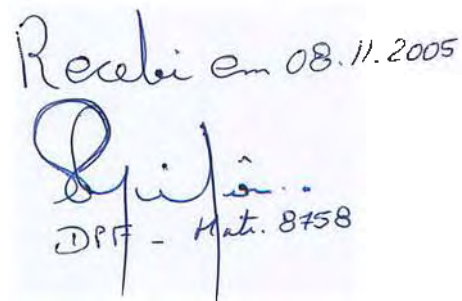 Recebi em 08.11.2005
DPF - Matr. 8758